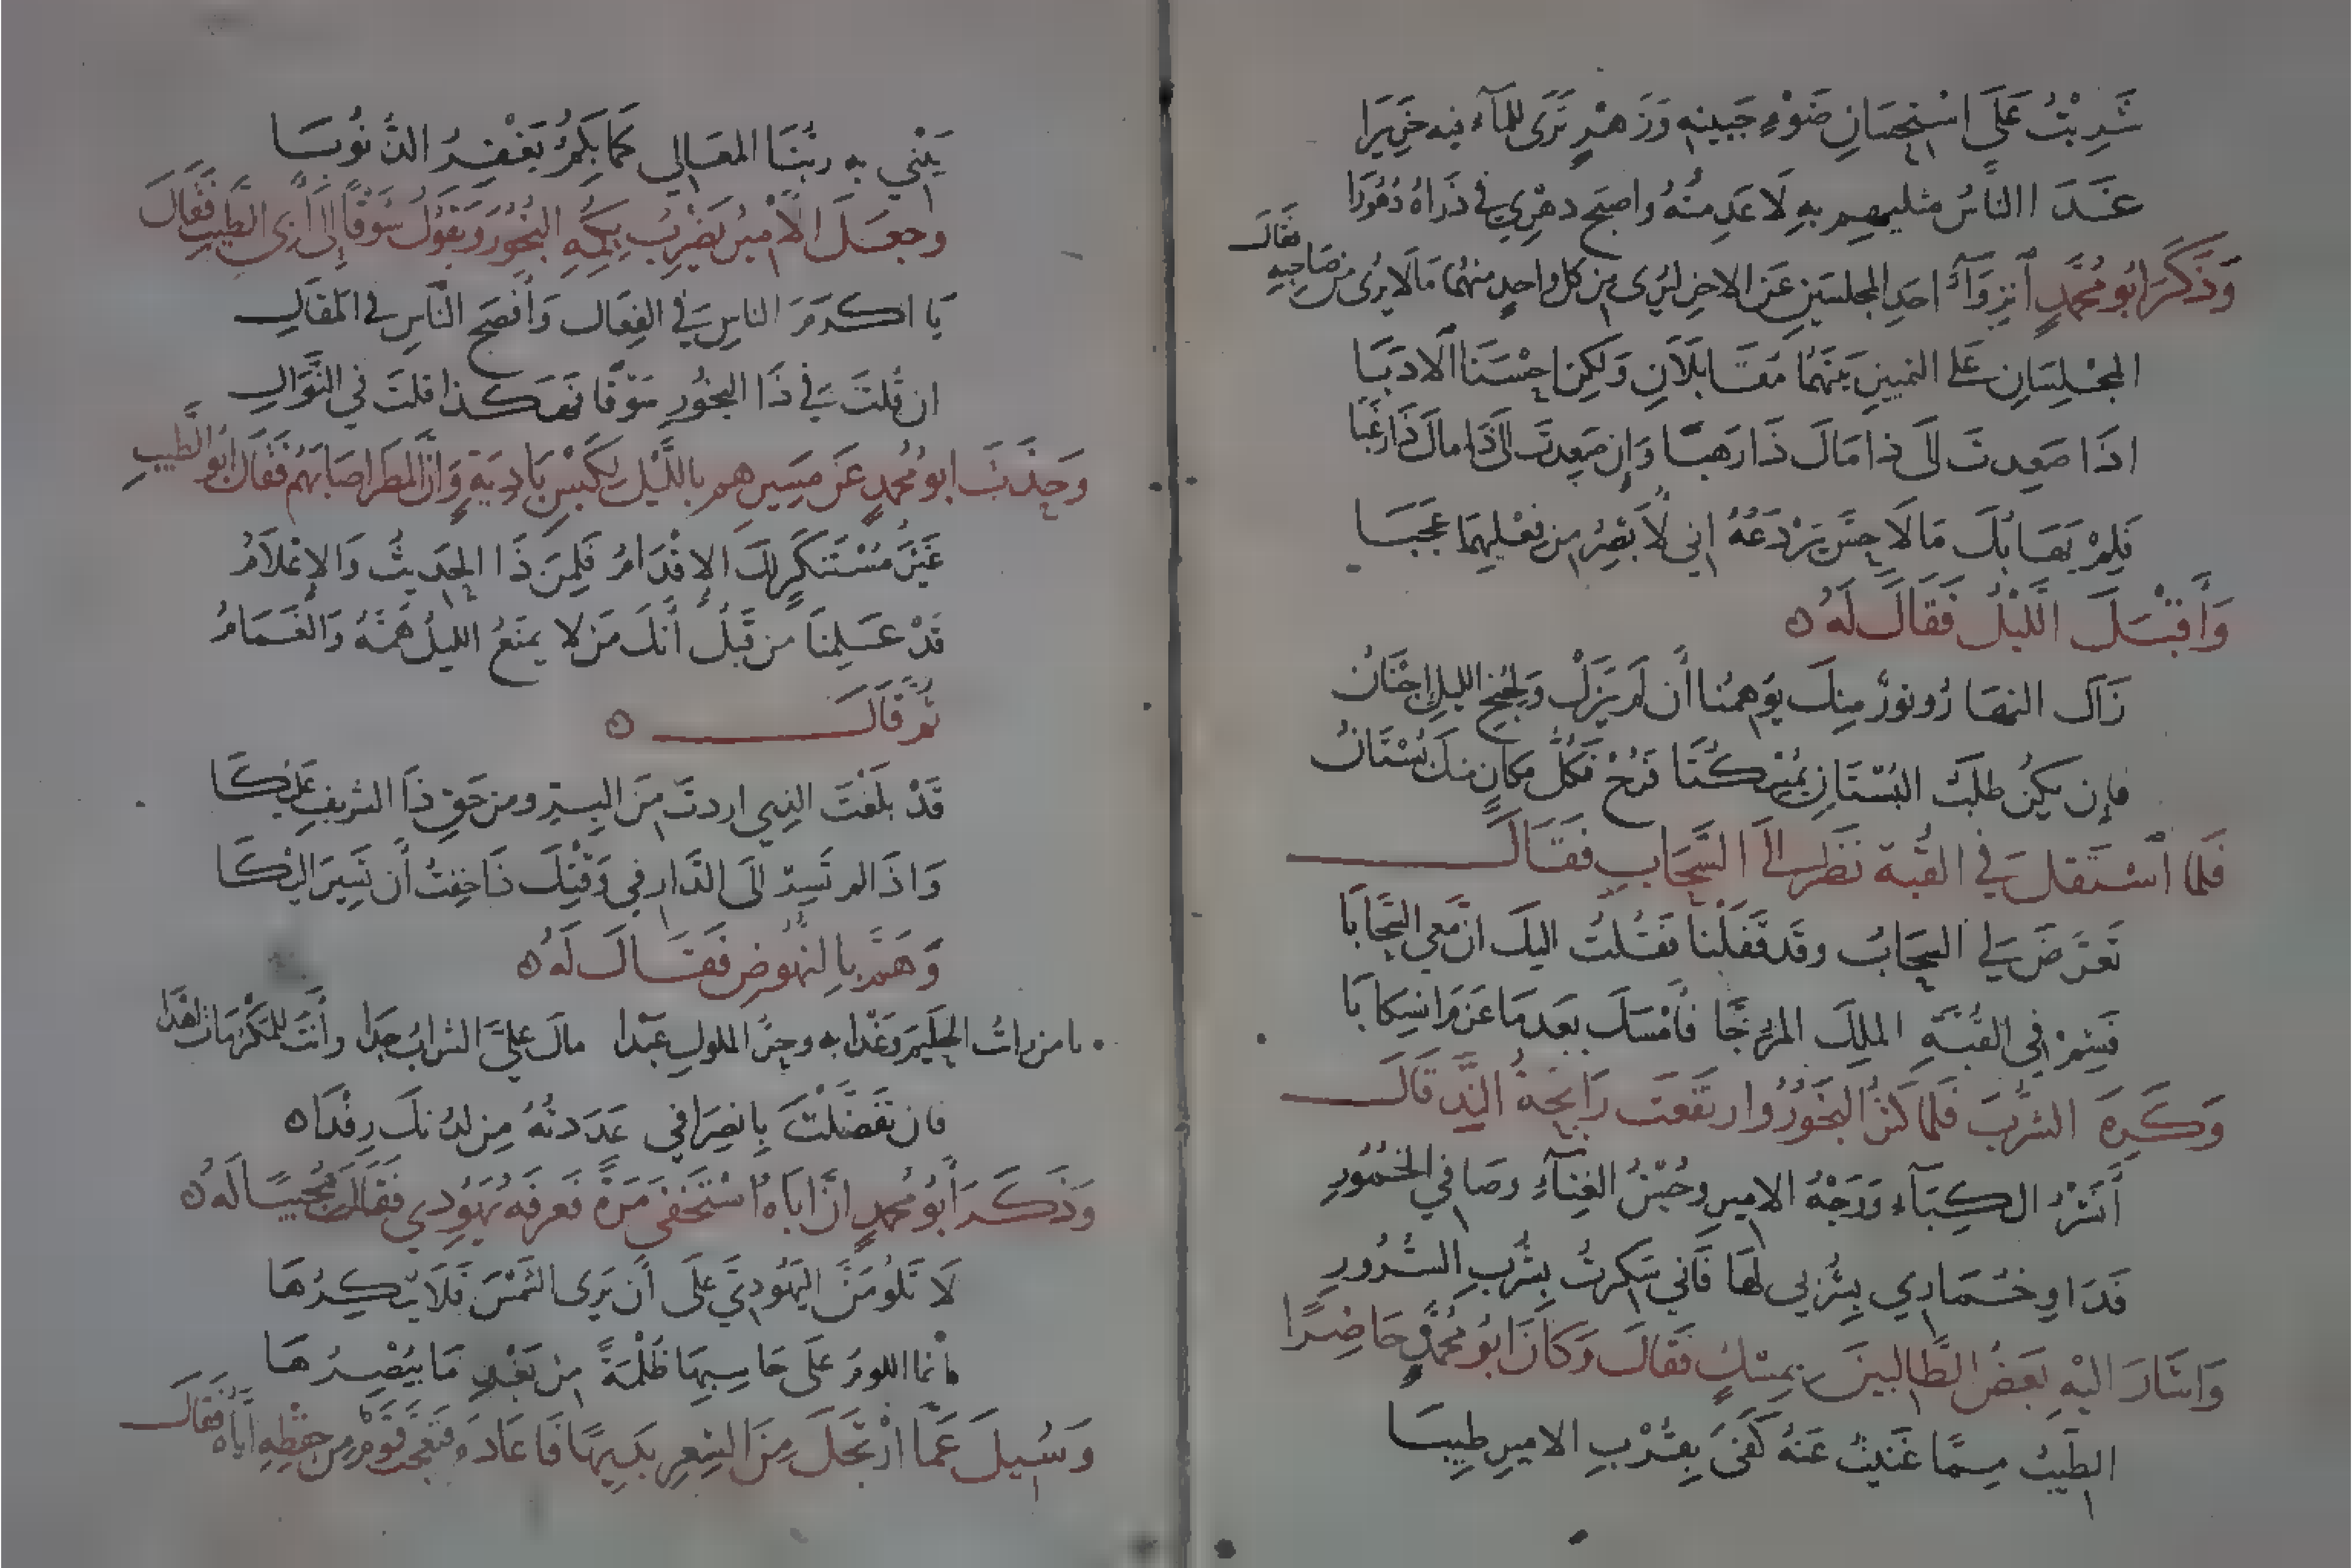 شَرِبْتُ عَلَى اسْتِحْسَانِ ضَوْءِ جَبِينِهِ وَزَهْرٍ تَرَى لِلمَاءِ فيه خَرِيرَا
غَدَا النَّاسُ مثليهم بهِ لَا عَدِمتُهُ واصبح دهري في ذَرَاهُ دُهُورَا
وَذَكَرَ ابُو مُحَمَّدٍ انزِوَآءَ احَدِ المجلسَينِ عَنِ الاخرِ ليُرى مِن كل واحدٍ منهُما مَا لَا يُرى من صَاحِبِهِ فقال
المجْلِسَانِ عَلَى التمييزِ بَينَهُمَا مُقَابلَانِ وَلَكِن احْسَنَا الادَبَا
اذَا صَعِدتَ الَى ذا مَالَ ذَا رَهَبًا وَإِن صَعِدتَ الَى ذَا مالَ ذَا رَغَبَا
فَلِمْ يَهَابُكَ مَا لَا حِسَّ يَرْدَعُهُ اني لَأبْصِرُ من فعْلَيهِمَا عَجَبَا
وَأَقْبَلَ الَّليْلُ فَقَالَ لَهُ ه
زَالَ النهَارُ ونورٌ مِنكَ يوُهِمُنا أَن لم يَزَلْ وَلجنحِ الليلِ إِجْنَانُ
فإن يَكُن طلَبُ البُسْتَانِ يُمْسِكُنَا فَرُحْ فَكُلُّ مكَانٍ منكَ بُسْتَانُ
فَلمَّا اسْتَقلَ في القُبَّة نَظَرَ الَى السَّحَابِ فَقَالَ
تَعَرَّضَ لي السَحَابُ وقَد قَفَلْنا فَقُلتُ اليكَ انَّ معي السَّحَابَا
فَشِمْ في القُبَّةِ الملِكَ المرَجَّا فَأمْسَكَ بَعدَ مَا عَزَمَ انسِكَابَا
وَكَرِهَ الشُّرْبَ فَلمَّا كَثُرَ البَخُورُ وارتَفَعَت رَائِحَةُ النَّدِ قَالَ
أَنَشْرُ الكِبَآءِ وَوَجْهُ الاميرِ وحُسْنُ الغِنَآءِ وصَافي الخُمُورِ
فَدَاوِ خُمَارِي بِشُرْبي لهَا فَاني سَكرتُ بِشُربِ السُّرُورِ
وَاشَارَ اليْهِ بَعَضُ الطَّالبينَ بمسْكٍ فَقَالَ وَكَانَ ابُو مُحَمَّدٍ حَاضِرًا
الطَيبُ مِمَّا غَنيتُ عَنهُ كَفَى بِقُرْبِ الاميرِ طِيبَا
يَبْني به ربُّنَا المعَالي كمَا بكُمْ يَغْفِرُ الذُّنُوبَا
وجعَلَ الأَميرُ يَضْرِبُ بكُمِّهِ البُخُورَ وَيَقوُلُ سَوْقًا إِلَى أَبي الطيب فَقَالَ
يَا اكرَمَ الناسِ في الفِعَالِ وَأَفْصَحَ النَّاسِ في المَقَالِ
ان قُلتَ في ذَا البخُورِ سَوْقًا فهَكَذا قلتَ في النَّوَالِ
وَحَدَّثَ ابُو مُحمدٍ عَن مَسِيرِهم بِاللَّيْلِ لِكَبْسِ بَادِيَةٍ وَانَّ المطَرَ اصَابَهُم فَقَالَ ابُو الطَّيبِ
غَيْرُ مُسْتَنكَرٍ لكَ الإِقْدَامُ فَلِمَن ذَا الحَدِيثُ وَالإِعْلاَمُ
قَدْ عَلِمنَا من قَبْلُ أَنَّكَ مَن لا يمنَعُ الليلُ همَّهُ وَالغَمَامُ
ثُمَّ قَالَ ه
قَدْ بلَغْتَ الذي اردتَ مِنَ البِرِ ومن حَقِ ذَا الشريفِ عَليْكَا
وَاذَا لم تَسِرْ الَى الدَّارِ في وَقْتِكَ ذَا خِفتُ أَن تَسِيرَ اليْكَا
وَهَمَّ بِالنهُوضِ فَقَالَ لَهُ ه
يا من رايتُ الحَليمَ وَغْدا به وحرَّ الملوك عَبْدا مالَ عليَّ الشرابُ جِدا وأَنتَ للمَكْرُمَات اهْدا
فان تَفَضَّلْتَ بِانصِرَافي عَدَدتُهُ مِن لدُنكَ رِفْدَا ه
وَذَكَرَ أَبُو مُحمدٍ انَّ ابَاهُ اسْتَخفَى مَرَةً فَعرفَهُ يَهُودِي فَقَالَ مُجِيبًا لَهُ ه
لَا تَلُومَنَّ اليَهُودِيَّ عَلَى أَن يَرَى الشَّمْسَ فَلَا يُنكِرُهَا
انما اللومُ عَلَى حَاسِبِهَا ظُلْمَةً مِن بَعْدِ مَا يُبْصِرُهَا
وَسُيلَ عَمَّا ارْتجَلَ مِنَ الشِعرِ بَدِيهًا فَاعَادَهُ فتعَجَّبَ قَوْمٌ مِن حفْظِهِ ايَّاهُ فَقَالَ